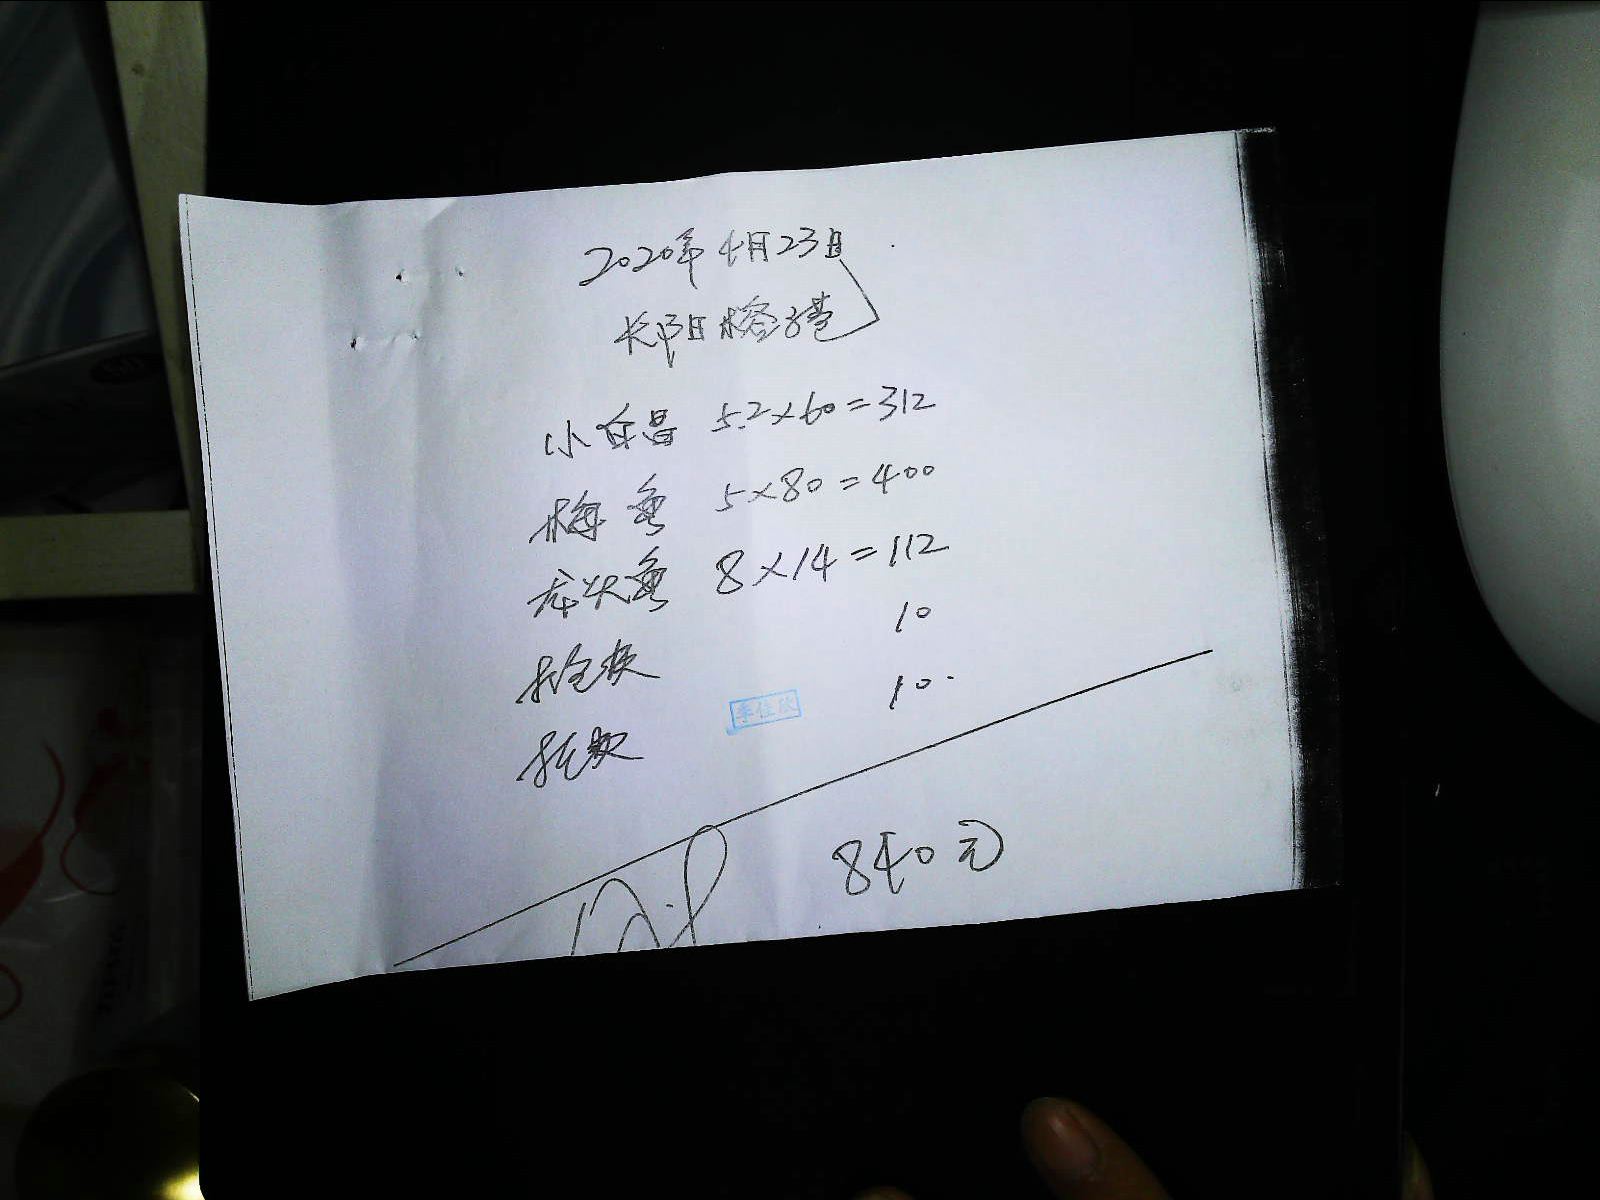 2020年4月23日
长阳榕子巷
小白昌 5.2×60=312
梅鱼 5×80=400
龙头鱼 8×14=112
10
10.
李佳欣
840元